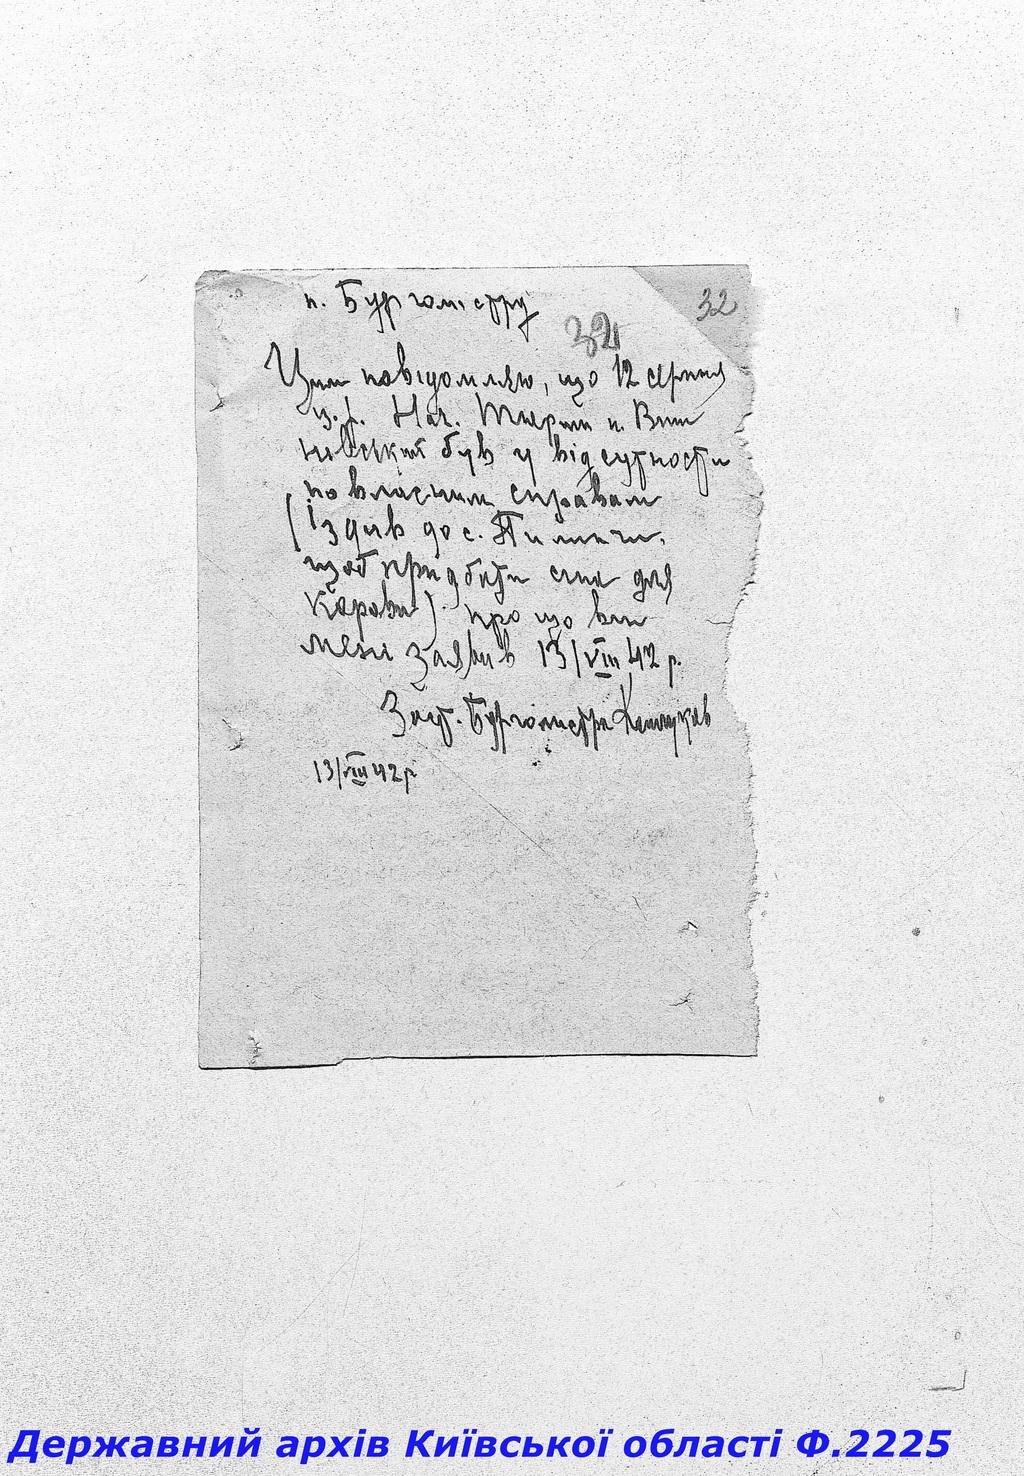 п. Бургомістру
32
32
Цим повідомляю, що 12 серпня
ц.р. Нач. п. Виш
нівський був у відсутности
по власним справам
(їздив до с.
щоб придбати сіна для
корови) про що він
мені заявив 13/VIII 42 р.
Заст. Бургомістра
13/VIII 42 р
Державний архів Київської області Ф.2225